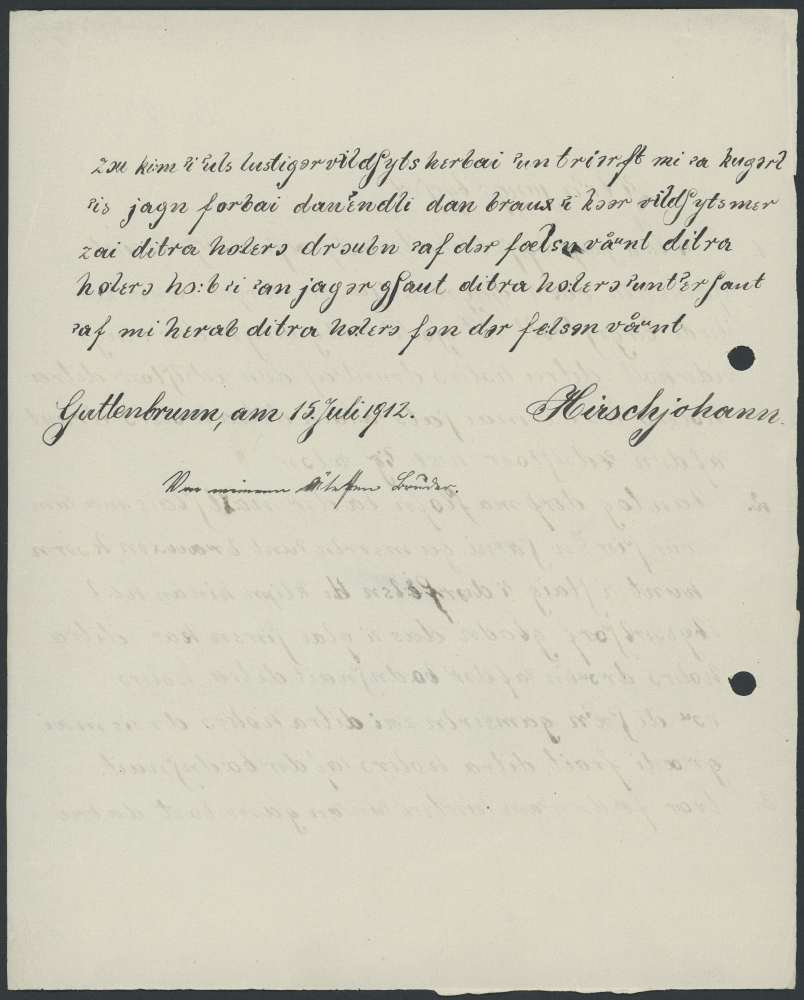 zɔu kim ʾi ʾuls lustigər vildʃyts herbai ʾun triərft mi ʾa kugərl
ʾis jagn forbai dan ʾendli dan braux ʾi kɔər vildʃyts mer
zai ditra hɔlerɔ drɔubn ʾaf dər fælsnvånt ditra
hɔlerɔ hɔ:b ʾi ʾan jagər gʃaut ditra hɔ:lerɔ ʾunt ʾer ʃaut
ʾaf mi herab ditra hɔlerɔ fɔn dər felsənvånt
Guttenbrunn, am 15. Juli 1912. Hirschjohann.
Von meinem ältesten Bruder.